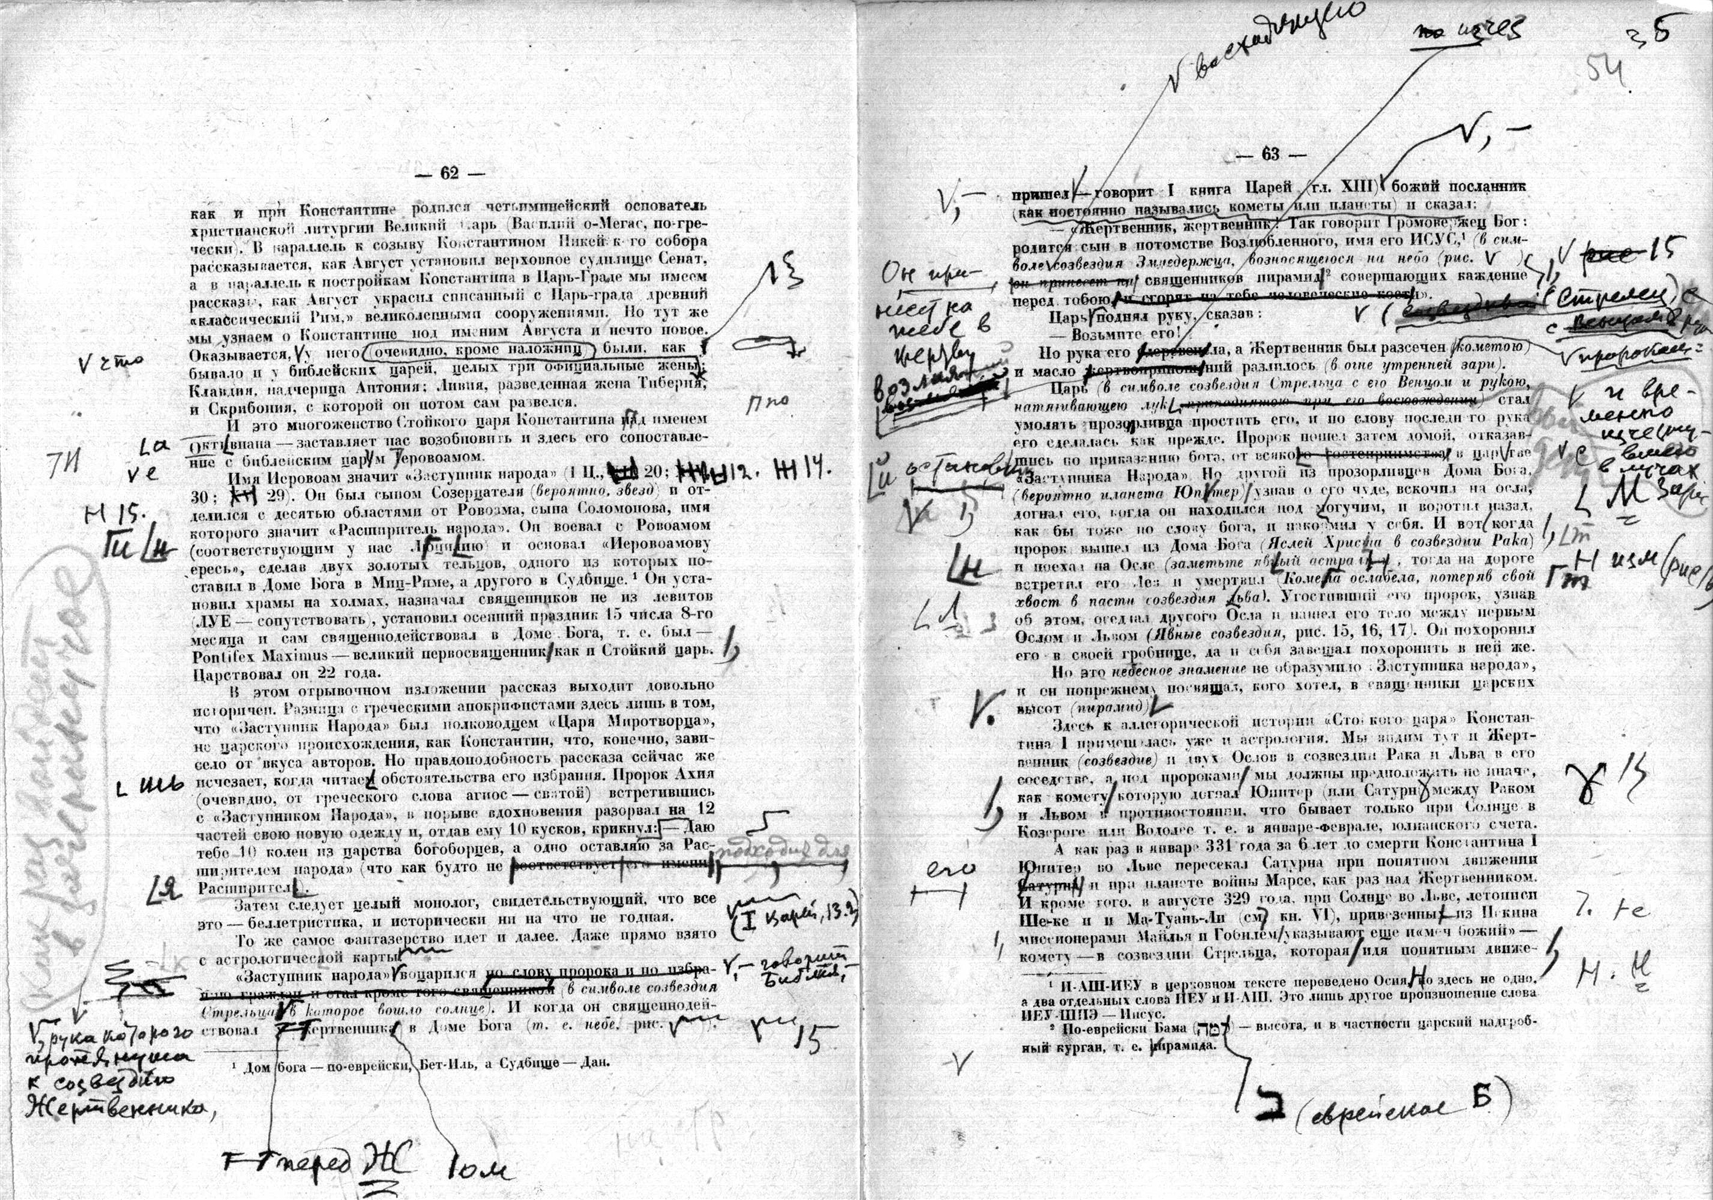 — 62 —
как и при Константине родился четьиминейский основатель
христианской литургии Великий Царь (Василий о-Мегас, по-гре-
чески). В параллель к созыву Константином Никейского собора
рассказывается, как Август установил верховное судилище Сенат,
а в параллель к постройкам Константина в Царь-Граде мы имеем
рассказы, как Август украсил списанный с Царь-града древний
«классический Рим,» великолепными сооружениями. Но тут же
мы узнаем о Константине под именем Августа и нечто новое.
Оказывается, у него очевидно, кроме наложниц были, как
бывало и у библейских царей, целых три официальные жены:
Клавдия, надчерица Антония; Ливия, разведенная жена Тиберия,
и Скрибония, с которой он потом сам развелся.
И это многоженство Стойкого царя Константина под именем
Октавиана — заставляет нас возобновить и здесь его сопоставле-
ние с библейским царем Иеровоамом.
Имя Иеровоам значит «Заступник народа» (I Ц., 20; 12. 14.
30; 29). Он был сыном Созерцателя (вероятно, звезд) и от-
делился с десятью областями от Ровоама, сына Соломонова, имя
которого значит «Расширитель народа». Он воевал с Ровоамом
(соответствующим у нас Лицинию) и основал «Иеровоамову
ересь», сделав двух золотых тельцов, одного из которых по-
ставил в Доме Бога в Миц-Риме, а другого в Судбище.¹ Он уста-
новил храмы на холмах, назначал священников не из левитов
(ЛУЕ — сопутствовать), установил осенний праздник 15 числа 8-го
месяца и сам священнодействовал в Доме Бога, т. е. был —
Pontifex Maximus — великий первосвященник как и Стойкий царь.
Царствовал он 22 года.
В этом отрывочном изложении рассказ выходит довольно
историчен. Разница с греческими апокрифистами здесь лишь в том,
что «Заступник Народа» был полководцем «Царя Миротворца»,
не царского происхождения, как Константин, что, конечно, зави-
село от вкуса авторов. Но правдоподобность рассказа сейчас же
исчезает, когда читаем обстоятельства его избрания. Пророк Ахия
(очевидно, от греческого слова агиос — святой) встретившись
с «Заступником Народа», в порыве вдохновения разорвал на 12
частей свою новую одежду и, отдав ему 10 кусков, крикнул: — Даю
тебе 10 колен из царства богоборцев, а одно оставляю за Рас-
ширителем народа» (что как будто не соответствует его имени
Расширитель.
Затем следует целый монолог, свидетельствующий, что все
это — беллетристика, и исторически ни на что не годная.
То же самое фантазерство идет и далее. Даже прямо взято
с астрологической карты
«Заступник народа» воцарился по слову пророка и по избра-
нию граждан и стал кроме того священником (в символе созвездия
Стрельца в которое вошло солнце). И когда он священнодей-
ствовал жертвенника в Доме Бога (т. е. небе. рис. ),
¹ Дом бога — по-еврейски, Бет-Иль, а Судбище — Дан.
что
Lа
е
Н 15.
как раз долбнет
шь
Lя
ппо
подходит для
(I Царей, 13.2)
говорит
Библия,
15
рука которого
протянута
к созвездию
Жертвенника,
перед ЖС
ом
восходящего
54
— 63 —
пришел — говорит I книга Царей (гл. XIII) божий посланник
(как постоянно назывались кометы или планеты) и сказал:
— «Жертвенник, жертвенник! Так говорит Громовержец Бог:
родится сын в потомстве Возлюбленного, имя его ИСУС,¹ (в сим-
воле созвездия Змиедержца, возносящегося на небо (рис. )
он принесет на священников пирамид² совершающих каждение
перед тобою и сгорят на тебе человеческие кости».
Царь поднял руку, сказав:
— Возьмите его!
Но рука его одервенела, а Жертвенник был рассечен (кометою)
и масло жертвоприношений разлилось (в огне утренней зари).
Царь (в символе созвездия Стрельца с его Венцом и рукою,
натягивающею лук приподнятою при его восхождении) стал
умолять прозорливца простить его, и по слову последнего рука
его сделалась как прежде. Пророк пошел затем домой, отказав-
шись по приказанию бога, от всякого гостеприимства в царстве
«Заступника Народа» Но другой из прозорливцев Дома Бога,
(вероятно планета Юпитер) узнав о его чуде, вскочил на осла,
догнал его, когда он находился под могучим, и воротил назад,
как бы тоже по слову бога, и накормил у себя. И вот когда
пророк вышел из Дома Бога (Яслей Христа в созвездии Рака)
и поехал на Осле (заметьте явный астрал , тогда на дороге
встретил его Лев и умертвил (Комета ослабела, потеряв свой
хвост в пасти созвездия Льва). Угостивший его пророк, узнав
об этом, оседлал другого Осла и нашел его тело между первым
Ослом и Львом (Явные созвездия, рис. 15, 16, 17). Он похоронил
его в своей гробнице, да и себя завещал похоронить в ней же.
Но это небесное знамение не образумило Заступника народа»,
и он попрежнему посвящал, кого хотел, в священники царских
высот (пирамид)
Здесь к аллегорической истории «Стойкого царя» Констан-
тина I примешалась уже и астрология. Мы видим тут и Жерт-
венник (созвездие) и двух Ослов в созвездии Рака и Льва в его
соседстве, а под пророками мы должны предположить не иначе,
как комету которую догнал Юпитер (или Сатурн) между Раком
и Львом в противостоянии, что бывает только при Солнце в
Козероге или Водолее т. е. в январе-феврале, юлианского счета.
А как раз в январе 331 года за 6 лет до смерти Константина I
Юпитер во Льве пересекал Сатурна при попятном движении
Сатурна и при планете войны Марсе, как раз над Жертвенником.
И кроме того, в августе 329 года, при Солнце во Льве, летописи
Ше-ке и и Ма-Туань-Ли (см. кн. VI), привезенные из Пекина
миссионерами Майлья и Гобилем указывают еще и «меч божий» —
комету — в созвездии Стрельца, которая идя попятным движе-
¹ И-АШ-ИЕУ в церковном тексте переведено Осия, но здесь не одно,
а два отдельных слова ИЕУ и И-АШ. Это лишь другое произношение слова
ИЕУ-ШИЭ — Иисус.
² По-еврейски Бама (במה) — высота, и в частности царский надгроб-
ный курган, т. е. пирамида.
Он при-
несет на
тебе в
жертву
остановки
его
15
(Стрелец,
и вре-
менно
исчезну-
в лучах
зари
ב (еврейское Б)